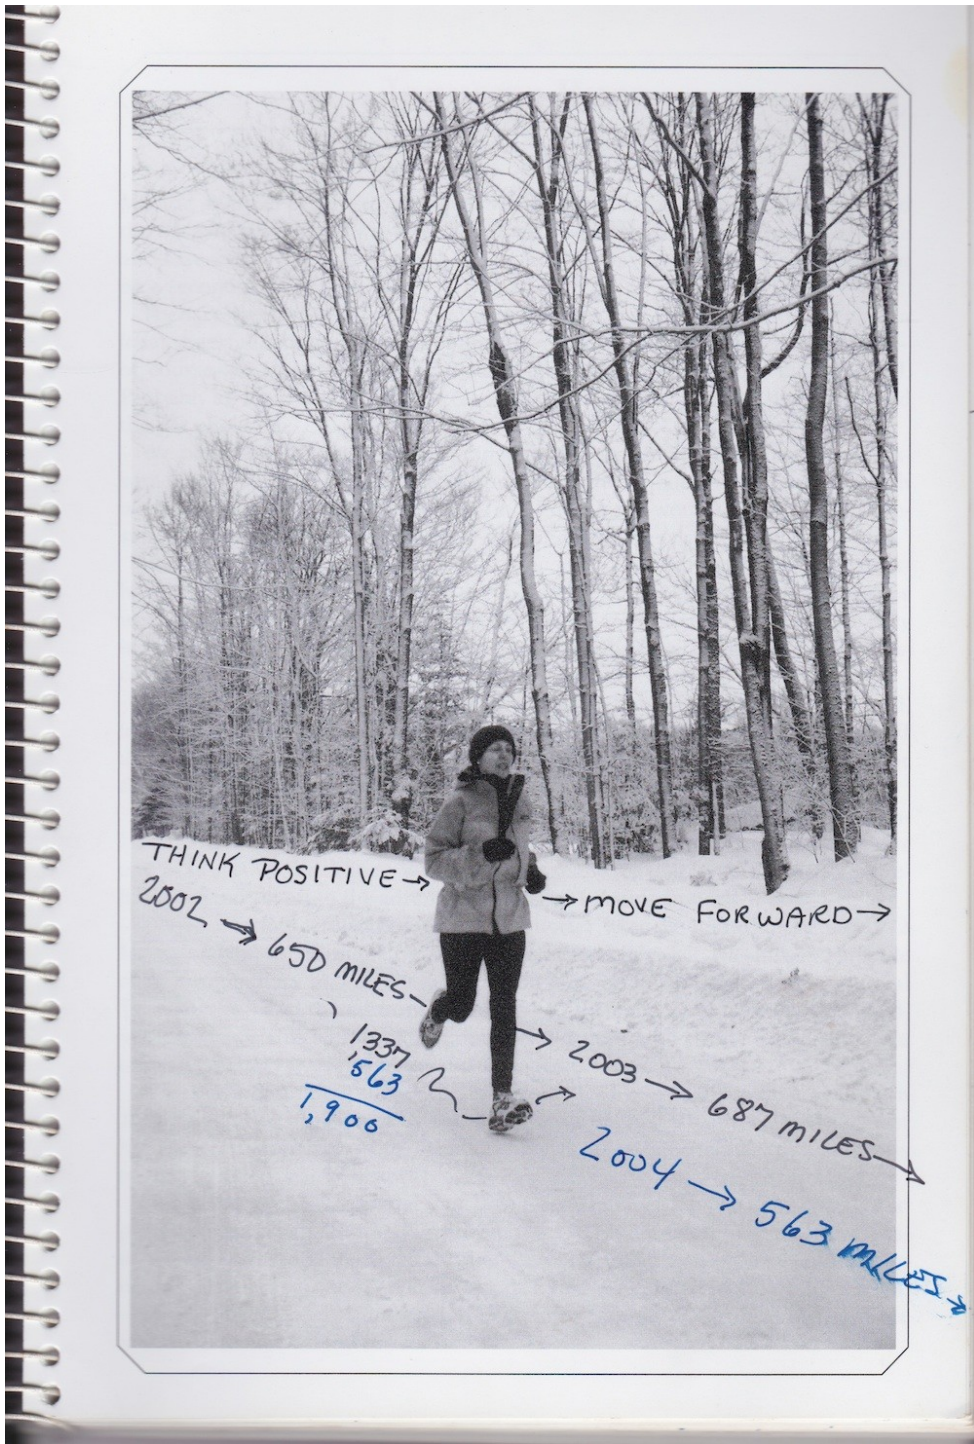 THINK POSITIVE→ →MOVE FORWARD→
2002 → 650 MILES- → 2003 → 687 MILES→
1337
563
1,900
2004 → 563 MILES→